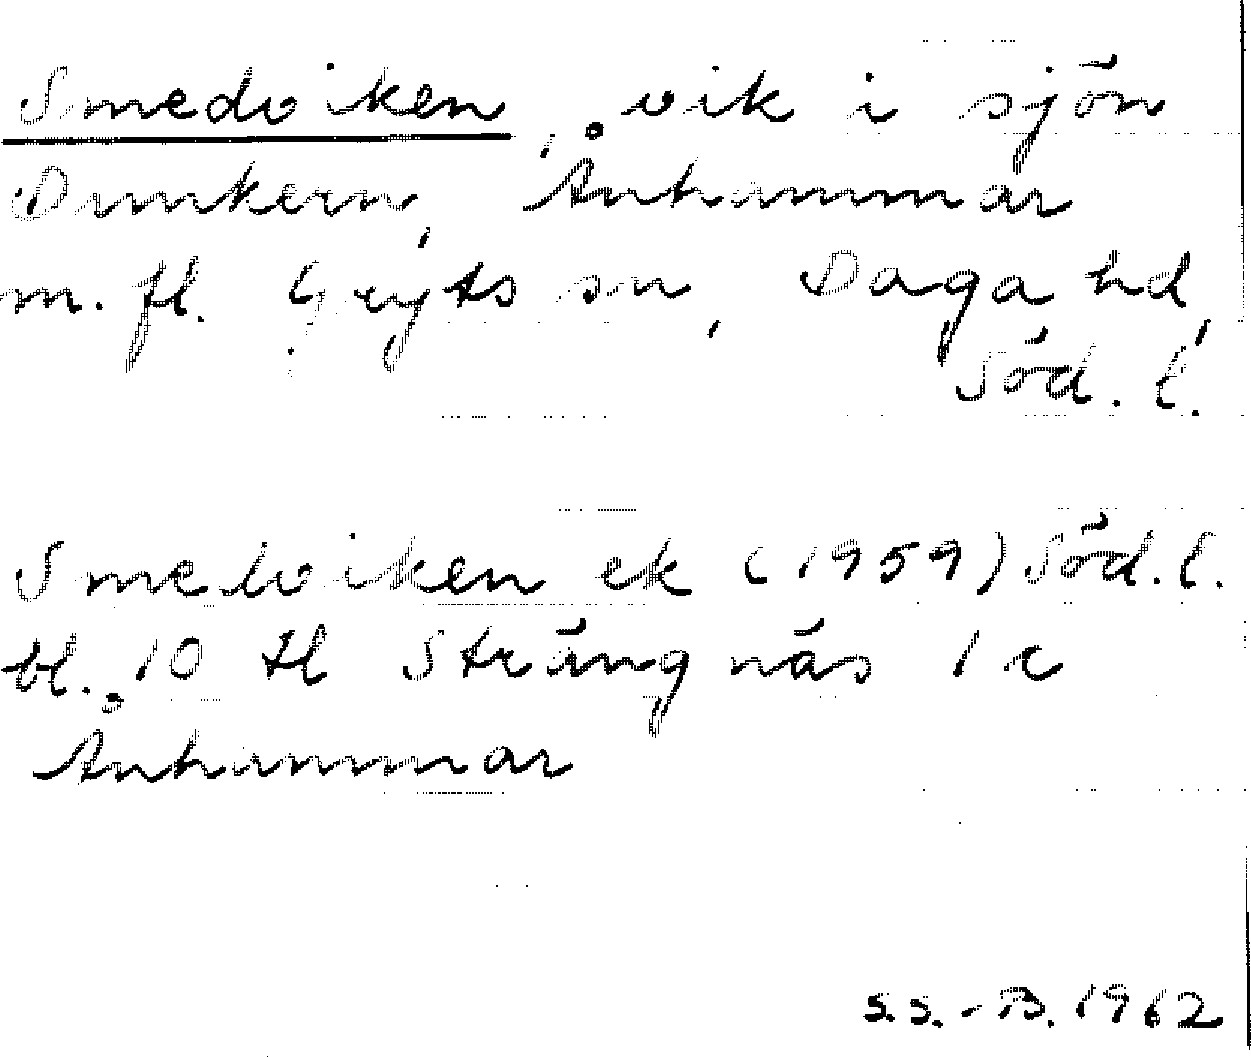 Smedviken, vik i sjön
Dunkern, Ånhammar
m. fl. Gryts sn, Daga hd,
Söd. l.
Smedviken ek (1959) Söd. l.
bl. 10 tl Strängnäs 1 c
Ånhammar
S.S.-B. 1962